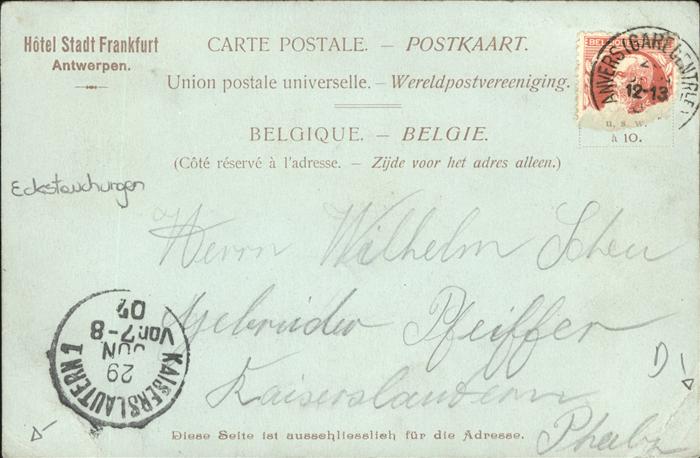 Hôtel Stadt Frankfurt
Antwerpen.
CARTE POSTALE. — POSTKAART.
Union postale universelle. — Wereldpostvereeniging.
BELGIQUE. — BELGIE.
(Côté réservé à l'adresse. — Zijde voor het adres alleen.)
ANVERS (GARE CENTRALE)
12-13
u. s. w.
à 10.
Eckstauchungen
Herrn Wilhelm Scheu
Gebrüder Pfeiffer
Kaiserslautern
Pfalz
D
KAISERSLAUTERN 1
29
JUN
Vor. 7-8
07
Diese Seite ist ausschliesslich für die Adresse.